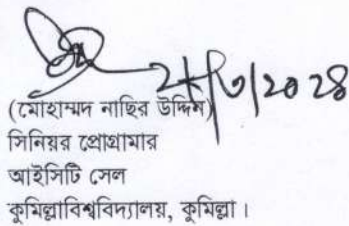 (মোহাম্মদ নাছির উদ্দিন)
সিনিয়র প্রোগ্রামার
আইসিটি সেল
কুমিল্লাবিশ্ববিদ্যালয়, কুমিল্লা।